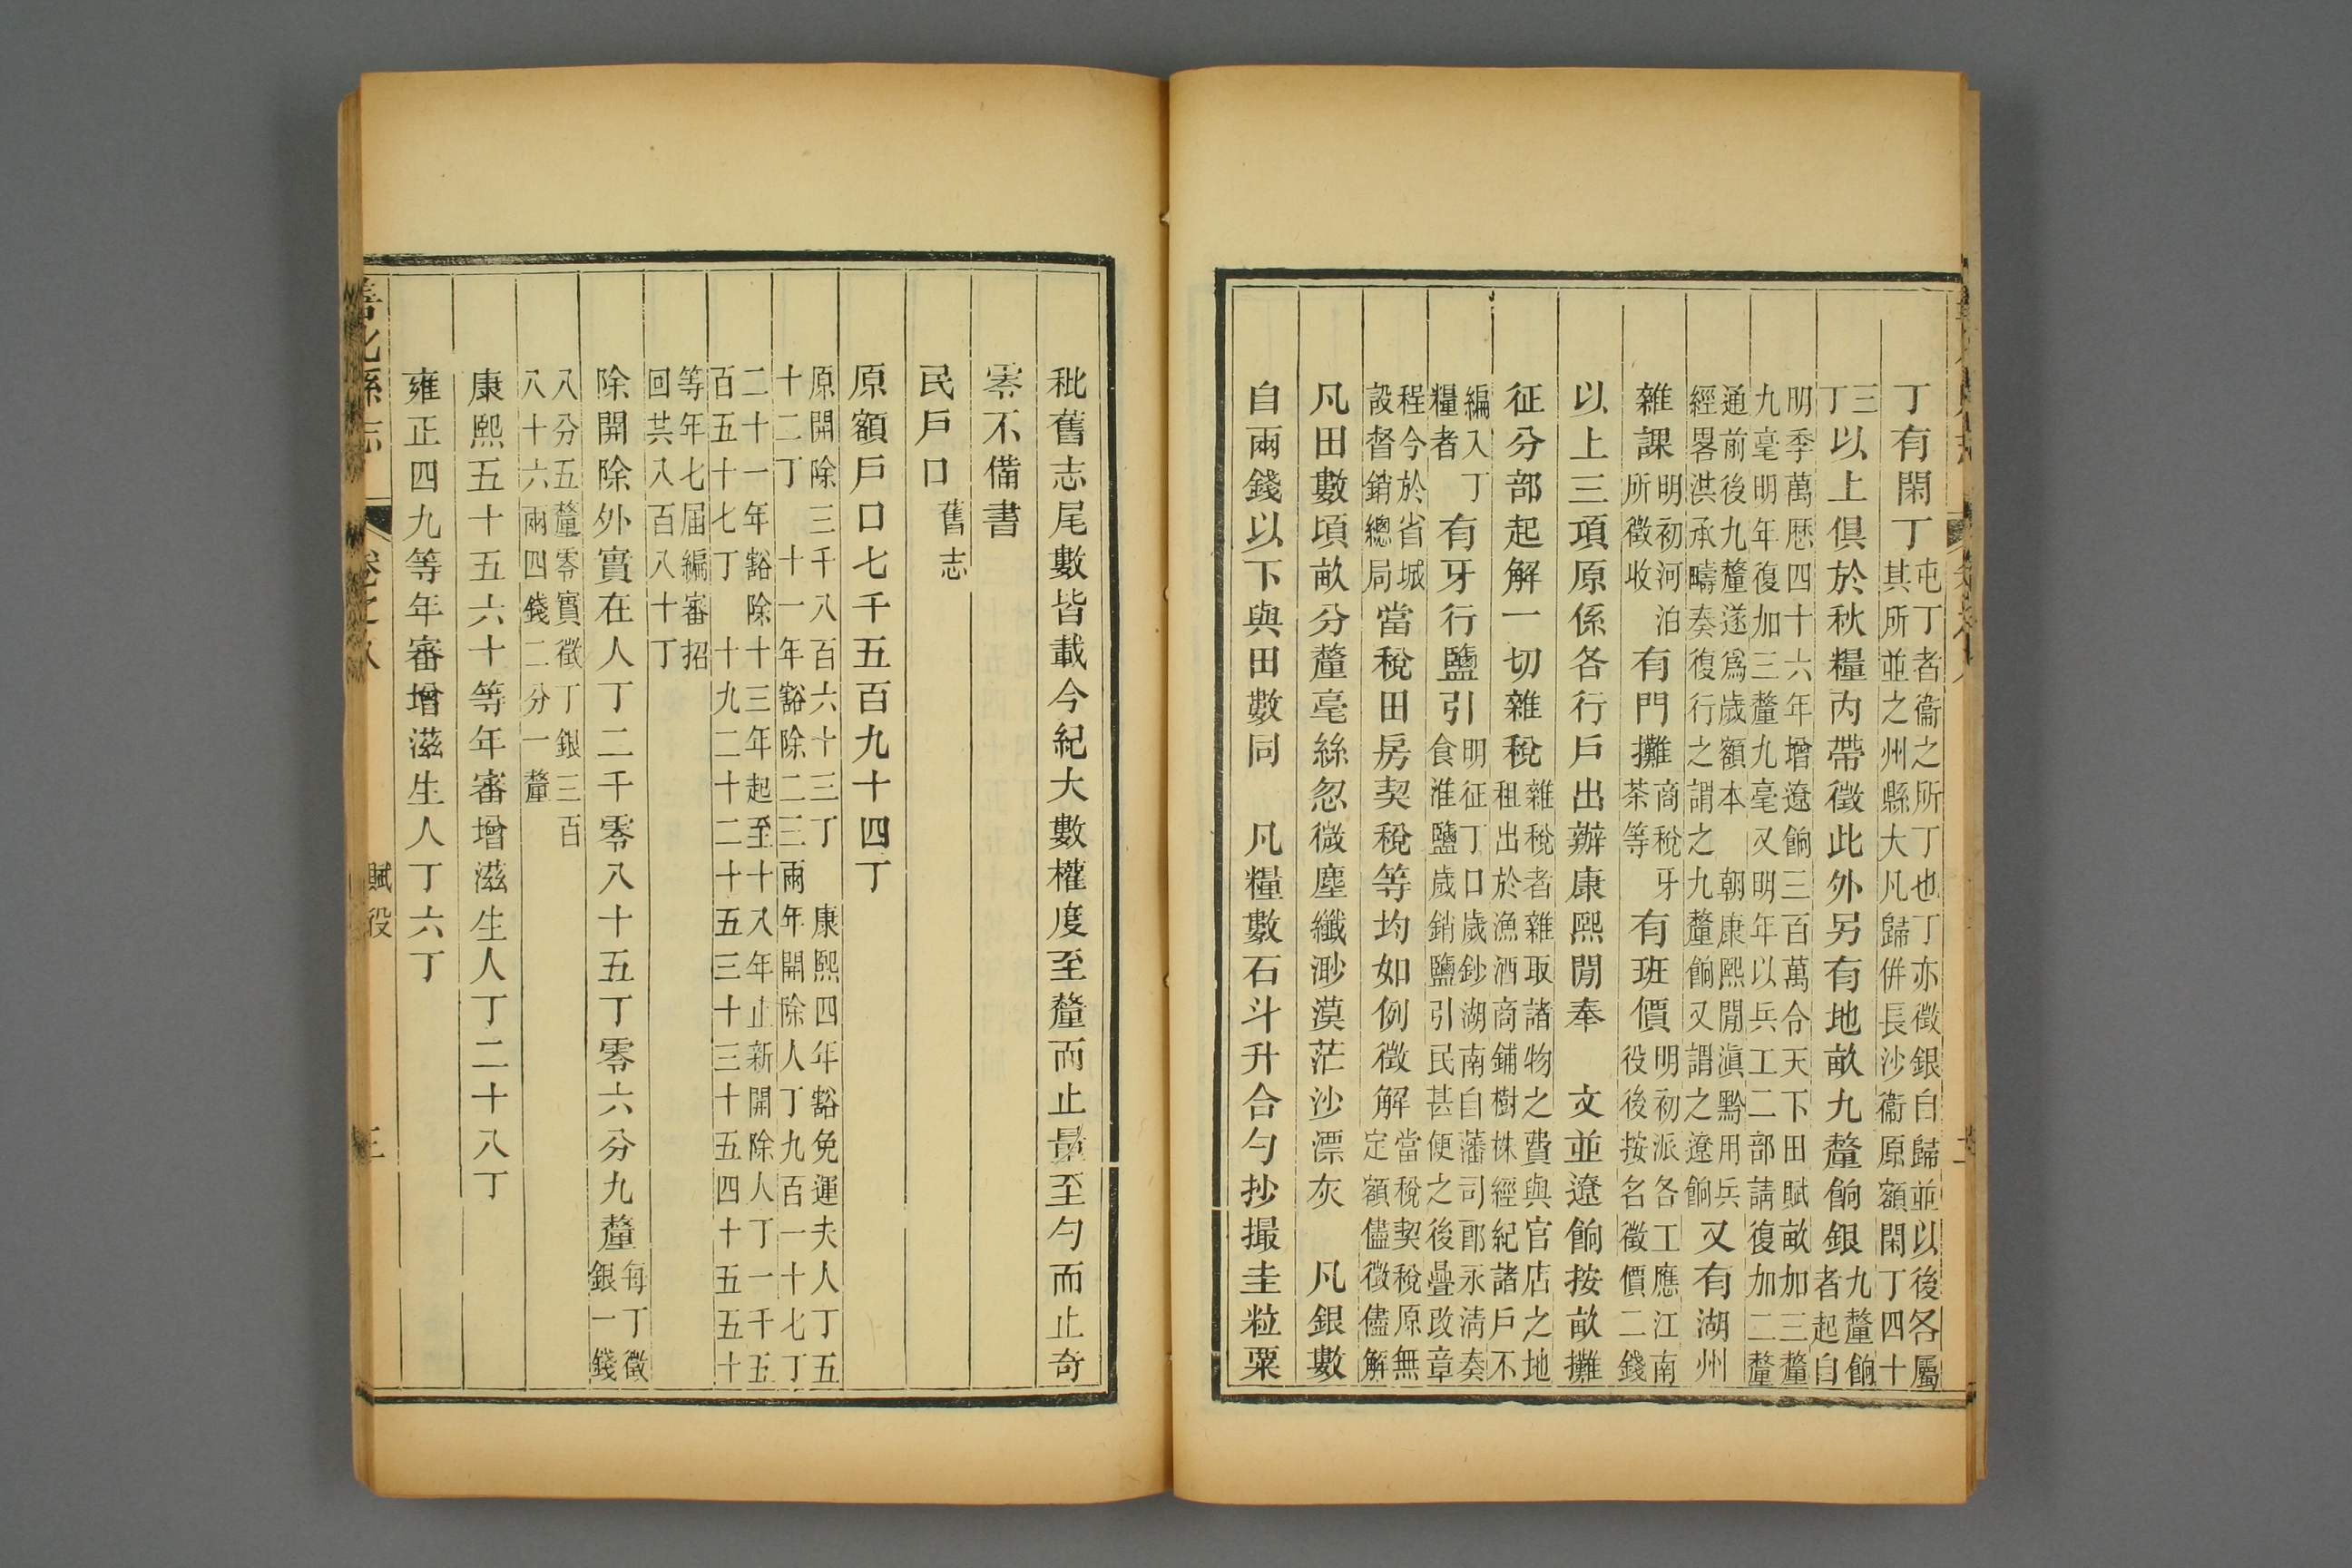 丁有閑丁屯丁者衞之所丁也丁亦徵銀自歸並以後各屬其所並之州縣大凡歸併長沙衞原額閑丁四十
三丁以上俱於秋糧內帶徵此外另有地畝九釐餉銀九釐餉者起自
明季萬厯四十六年增遼餉三百萬合天下田賦畝加三釐九毫明年復加三釐九毫又明年以兵工二部請復加二釐
通前後九釐遂爲歲額本　朝康熙閒滇黔用兵經畧洪承疇奏復行之謂之九釐餉又謂之遼餉又有湖州
雜課明初河泊所徵收有門攤商稅牙茶等有班價明初派各工應江南役後按名徵價二錢
以上三項原係各行戶出辦康熙閒奉　文並遼餉按畝攤
征分部起解一切雜稅雜稅者雜取諸物之費與官店之地租出於漁酒商鋪樹株經紀諸戶不
編入丁糧者有牙行鹽引明征丁口歲鈔湖南自藩司郎永清奏食淮鹽歲銷鹽引民甚便之後疊改章
程今於省城設督銷總局當稅田房契稅等均如例徵解當稅契稅原無定額儘徵儘解
凡田數頃畝分釐毫絲忽微塵纖渺漠茫沙漂灰　凡銀數
自兩錢以下與田數同　凡糧數石斗升合勺抄撮圭粒粟
秕舊志尾數皆載今紀大數權度至釐而止量至勺而止奇
零不備書
民戶口舊志
原額戶口七千五百九十四丁
原開除三千八百六十三丁　康熙四年豁免運夫人丁五十二丁　十一年豁除二三兩年開除人丁九百一十七丁
二十一年豁除十三年起至十八年止新開除人丁一千五百五十七丁　十九二十二十五三十三十五四十五五十
等年七届編審招回共八百八十丁
除開除外實在人丁二千零八十五丁零六分九釐每丁徵銀一錢
八分五釐零實徵丁銀三百八十六兩四錢二分一釐
康熙五十五六十等年審增滋生人丁二十八丁
雍正四九等年審增滋生人丁六丁
善化縣志　卷之八　賦役　三